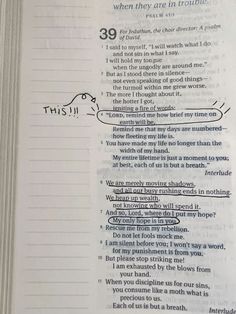 when they are in trouble.
PSALM 41:1
39 For Jeduthun, the choir director: A psalm
of David.
1 I said to myself, "I will watch what I do
and not sin in what I say.
I will hold my tongue
when the ungodly are around me."
2 But as I stood there in silence—
not even speaking of good things—
the turmoil within me grew worse.
3 The more I thought about it,
the hotter I got,
igniting a fire of words:
THIS!!!
4 "LORD, remind me how brief my time on
earth will be.
Remind me that my days are numbered—
how fleeting my life is.
5 You have made my life no longer than the
width of my hand.
My entire lifetime is just a moment to you;
at best, each of us is but a breath."
Interlude
6 We are merely moving shadows,
and all our busy rushing ends in nothing.
We heap up wealth,
not knowing who will spend it.
7 And so, Lord, where do I put my hope?
My only hope is in you.
8 Rescue me from my rebellion.
Do not let fools mock me.
9 I am silent before you; I won't say a word,
for my punishment is from you.
10 But please stop striking me!
I am exhausted by the blows from
your hand.
11 When you discipline us for our sins,
you consume like a moth what is
precious to us.
Each of us is but a breath.
Interlude